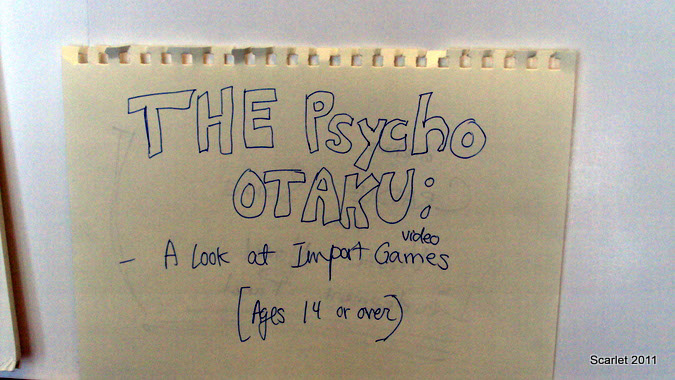 THE Psycho
OTAKU:
video
- A Look at Import Games
[Ages 14 or over)
Scarlet 2011